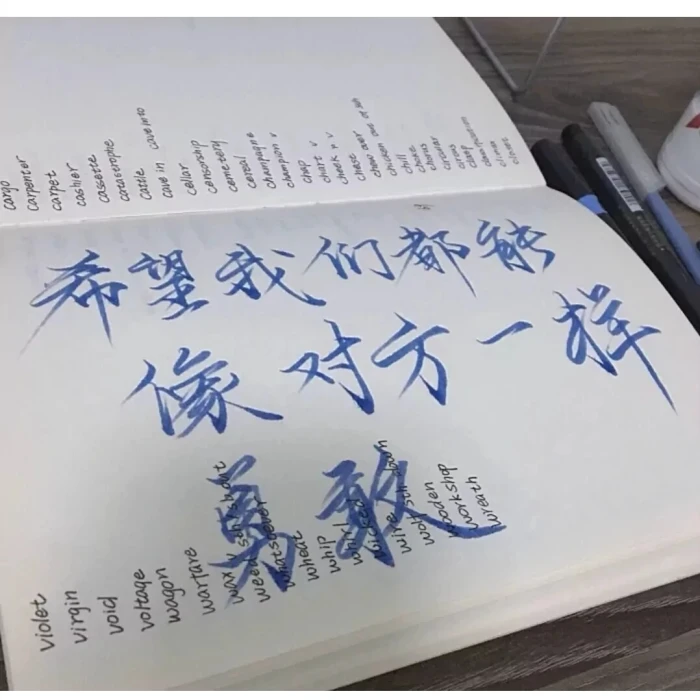 cargo
carpenter
carpet
cashier
cassette
catastrophe
cattle
cave in cave into
cellar
censorship
cemetery
cereal
champagne
champion v
chap
chart v
cheek n v
chew over
chicken
chill
choke
chorus
circular
circus
希望我们都能
像对方一样
勇敢
violet
virgin
void
voltage
wagon
warfare
wax
weed
whatsoever
wheat
whip
whirl
wicked
wire sth down
wolf
wooden
workshop
wreath